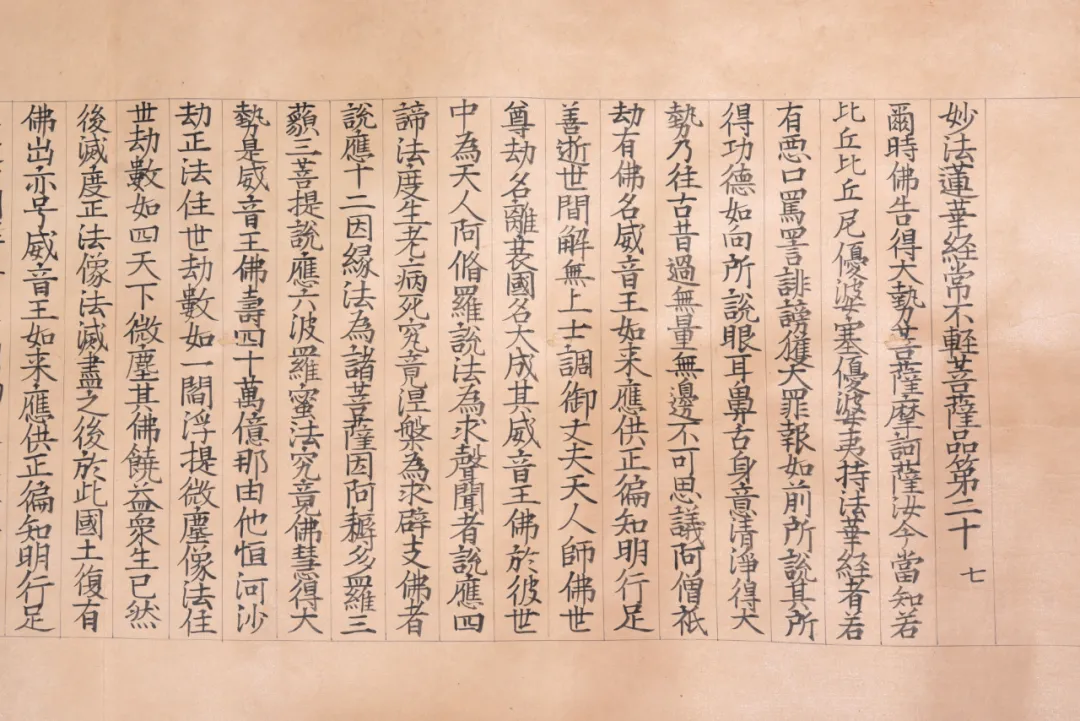 妙法蓮華経常不軽菩薩品第二十 七
爾時佛告得大勢菩薩摩訶薩汝今當知若
比丘比丘尼優波婆塞優婆夷持法華経者若
有悪口罵詈誹謗獲大罪報如前所説其所
得功徳如向所説眼耳鼻舌身意清淨得大
勢乃往古昔過無量無邊不可思議阿僧祇
劫有佛名威音王如来應供正徧知明行足
善逝世間解無上士調御丈夫天人師佛世
尊劫名離衰國名大成其威音王佛於彼世
中為天人阿脩羅説法為求聲聞者説應四
諦法度生老病死究竟涅槃為求辟支佛者
説應十二因縁法為諸菩薩因阿耨多羅三
藐三菩提説應六波羅蜜法究竟佛慧得大
勢是威音王佛壽四十萬億那由他恒河沙
劫正法住世劫數如一閻浮提微塵像法住
世劫數如四天下微塵其佛饒益衆生已然
後滅度正法像法滅盡之後於此國土復有
佛出亦号威音王如来應供正徧知明行足